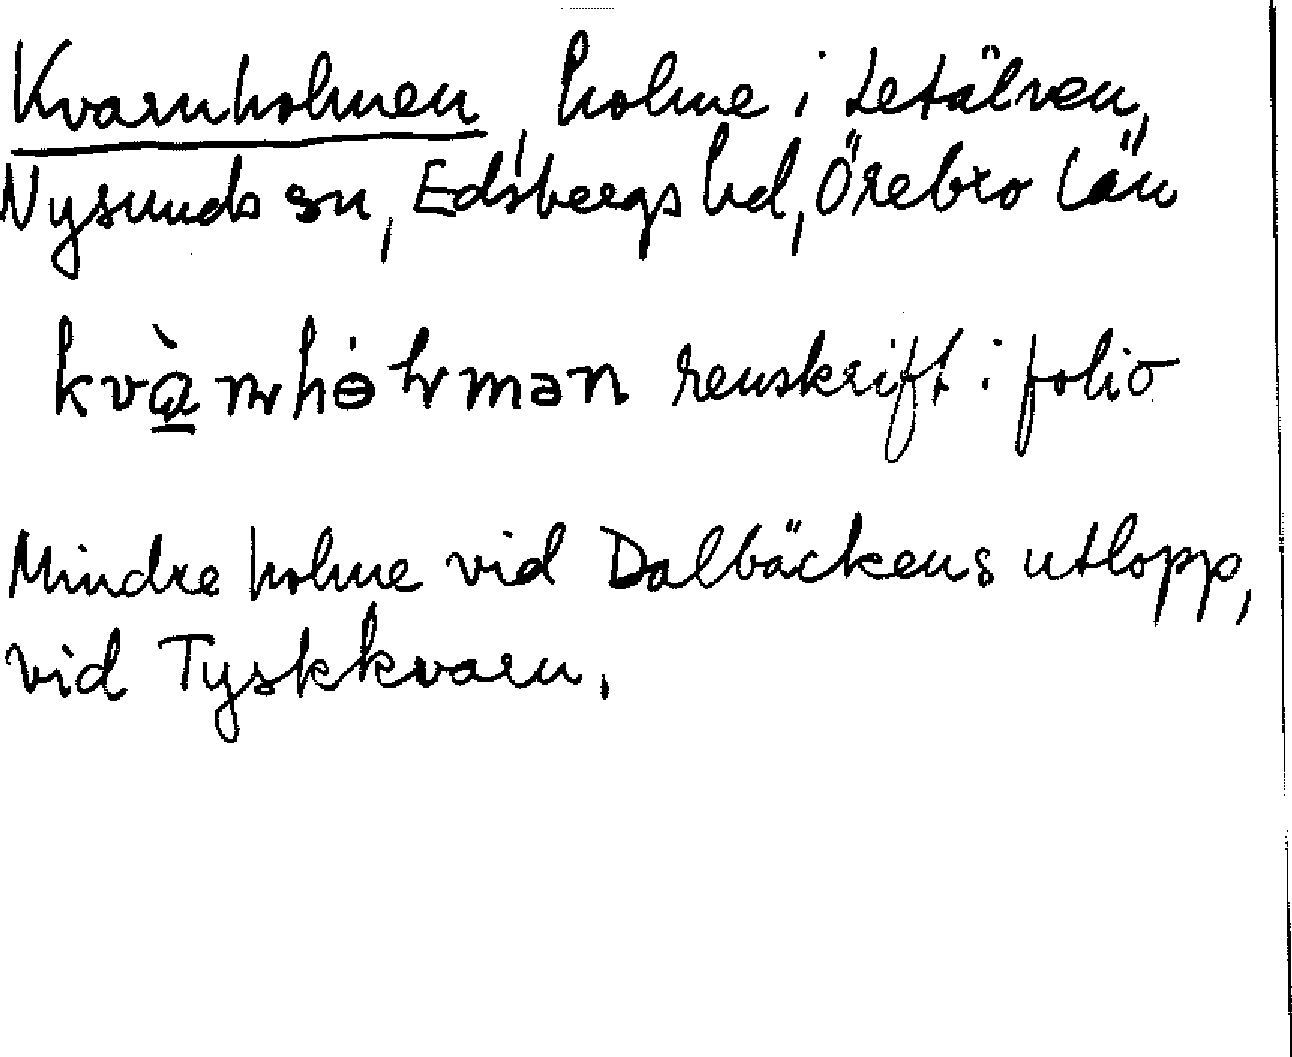 Kvarnholmen, holme i Letälven,
Nysunds sn, Edsbergs hd, Örebro län
renskrift i folio
Mindre holme vid Dalbäckens utlopp,
vid Tyskkvarn.